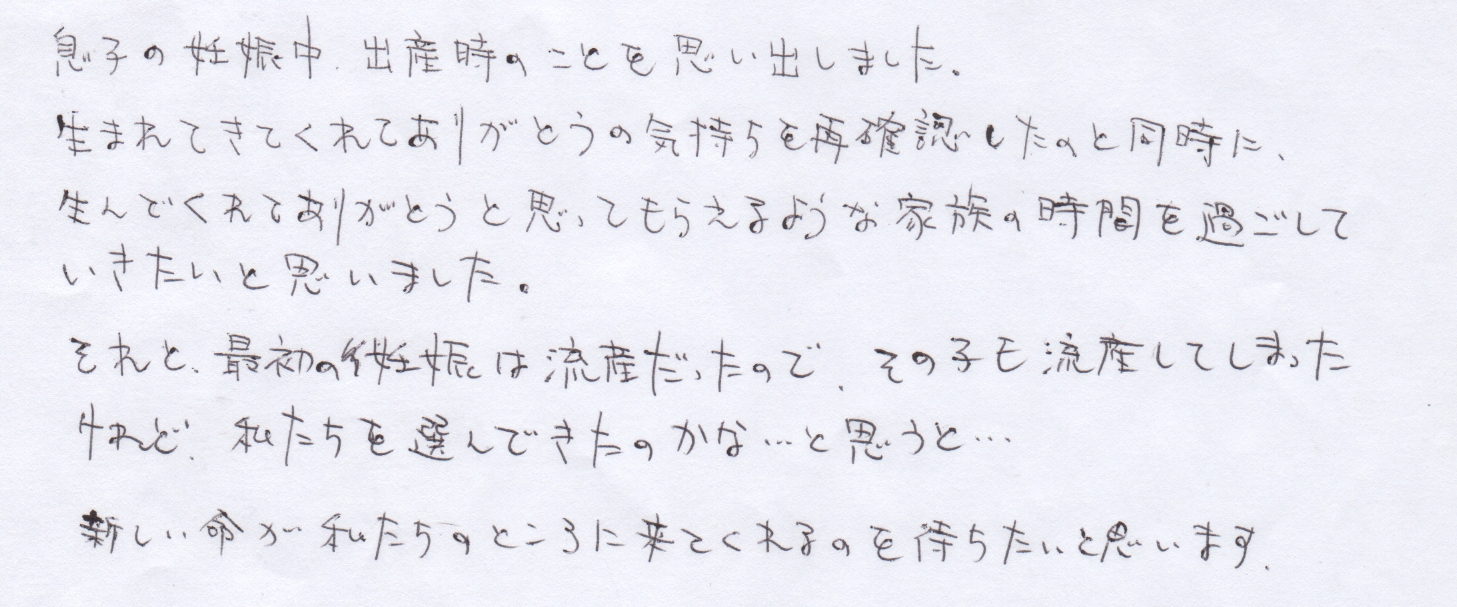 息子の妊娠中、出産時のことを思い出しました。
生まれてきてくれてありがとうの気持ちを再確認したのと同時に、
生んでくれてありがとうと思ってもらえるような家族の時間を過ごして
いきたいと思いました。
それと、最初の妊娠は流産だったので、その子も流産してしまった
けれど、私たちを選んできたのかな…と思うと…
新しい命が私たちのところに来てくれるのを待ちたいと思います。